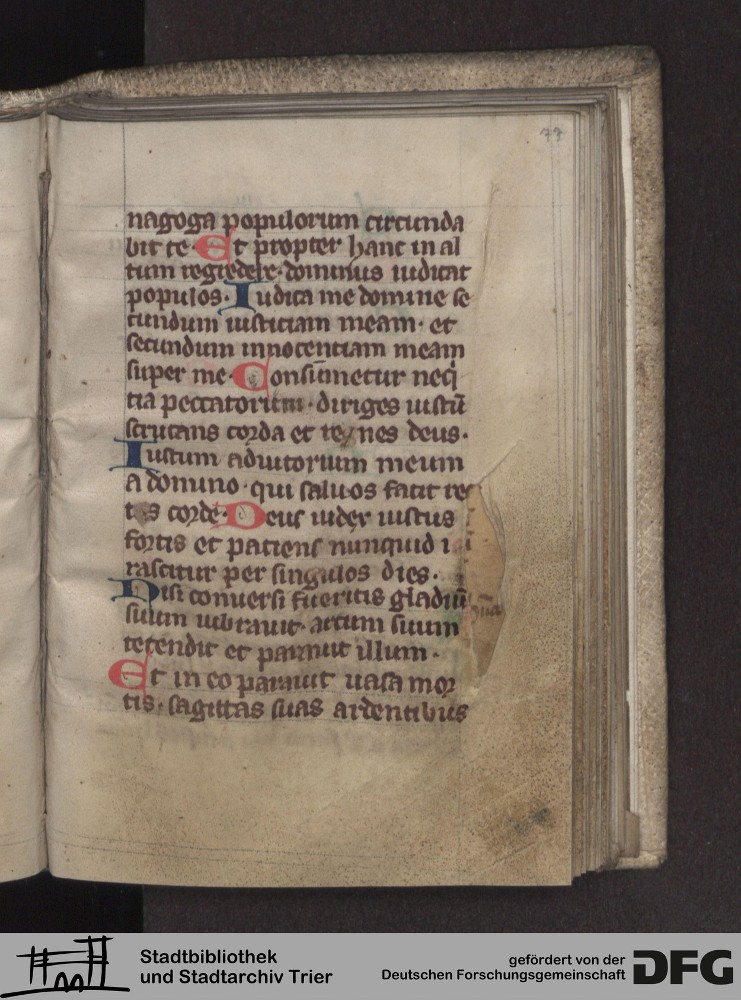 77
nagoga populorum circunda
bit te. Et propter hanc in al
tum regredere. dominus iudicat
populos. Iudica me domine se
cundum iusticiam meam. et
secundum innocentiam meam
super me. Consumetur neq̇
tia peccatorum. diriges iustū
scrutans corda et renes deus.
Iustum adiutorium meum
a domino. qui saluos facit rec
tos corde. Deus iudex iustus
fortis et patiens nunquid i
rascitur per singulos dies.
Nisi conuersi fueritis gladiū
suum uibrauit. arcum suum
tetendit et parauit illum.
Et in eo parauit uasa mor
tis. sagittas suas ardentibus
Stadtbibliothek
und Stadtarchiv Trier
gefördert von der
Deutschen Forschungsgemeinschaft DFG